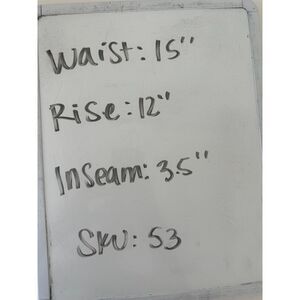 Waist: 15"
Rise: 12"
Inseam: 3.5"
SKU: 53